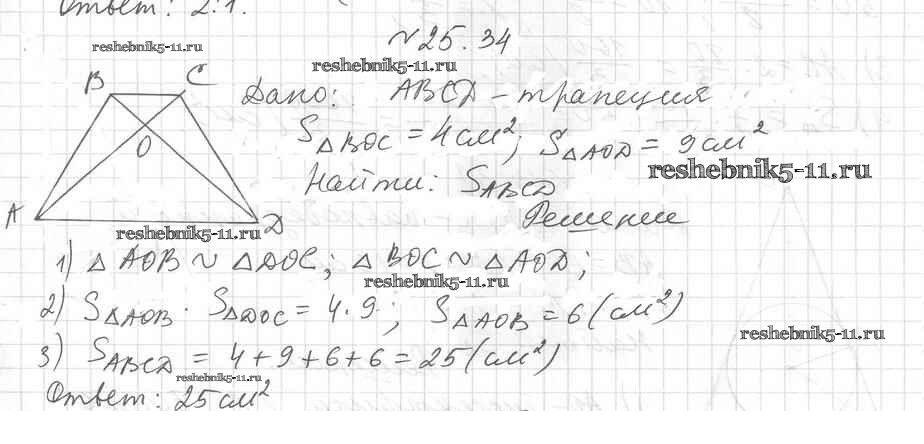 Ответ: 2:1.
№25.34
reshebnik5-11.ru
reshebnik5-11.ru
B C
Дано: ABCD – трапеция
S△BOC = 4см²; S△AOD = 9см²
O
reshebnik5-11.ru
Найти: SABCD
A D
Решение
reshebnik5-11.ru
1) △AOB ~ △DOC; △BOC ~ △AOD;
reshebnik5-11.ru
2) S△AOB · S△DOC = 4·9; S△AOB = 6 (см²)
reshebnik5-11.ru
3) SABCD = 4+9+6+6 = 25 (см²)
reshebnik5-11.ru
Ответ: 25см²